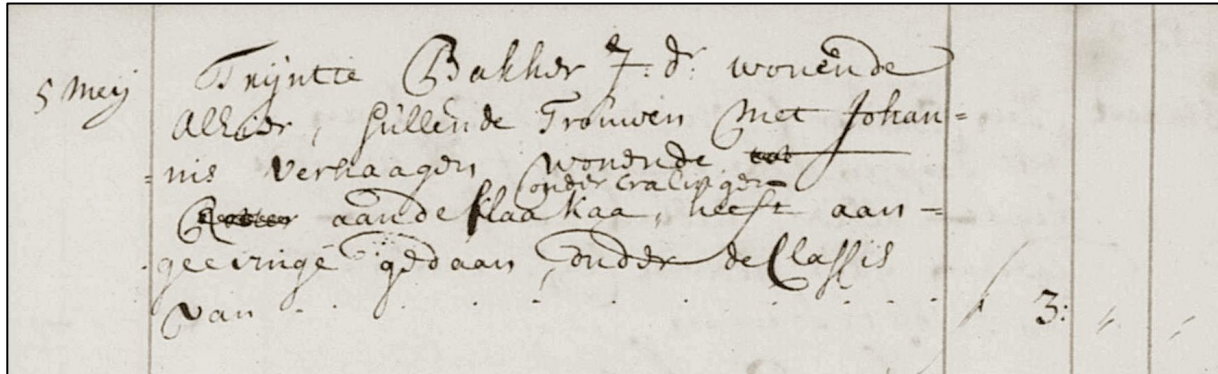 5 Meij Trijntie Bakker J: dr: wonende
Alhier, Sullende Trouwen Met Johan=
=nis Verhaagen wonende tot
onder Cralingen
aan de klaa Kaa, heeft aan=
geevinge gedaan, onder de Classis
van . . . . . . . . . . . 3: